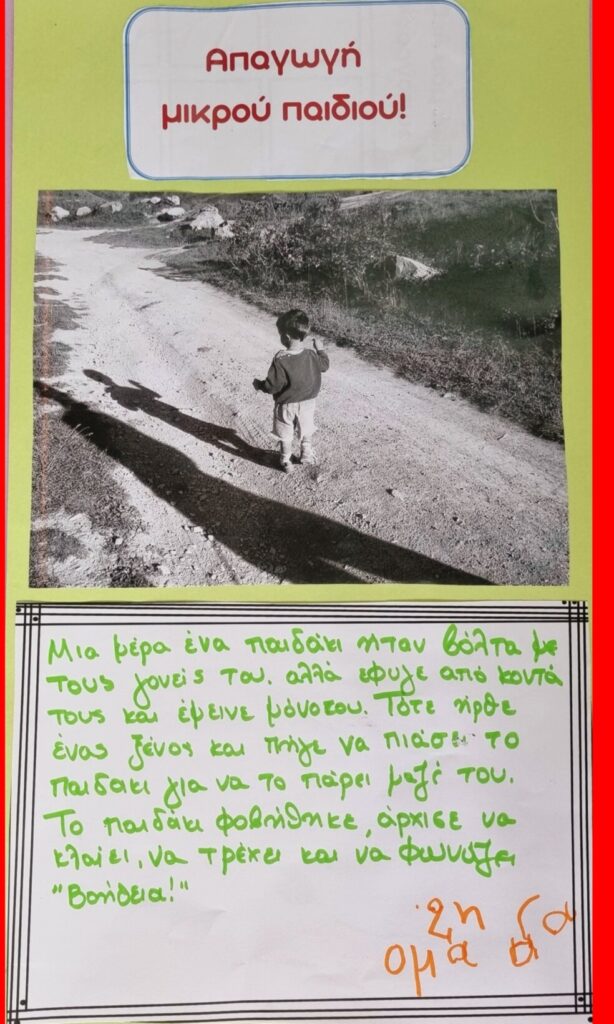 Απαγωγή
μικρού παιδιού!
Μια μέρα ένα παιδάκι ήταν βόλτα με
τους γονείς του. αλλά έφυγε από κοντά
τους και έμεινε μόνοτου. Τότε ήρθε
ένας ξένος και πήγε να πιάσει το
παιδάκι για να το πάρει μαζί του.
Το παιδάκι φοβήθηκε, άρχισε να
κλαίει, να τρέχει και να φωνάζει
"Βοήθεια!"
2η
ομάδα